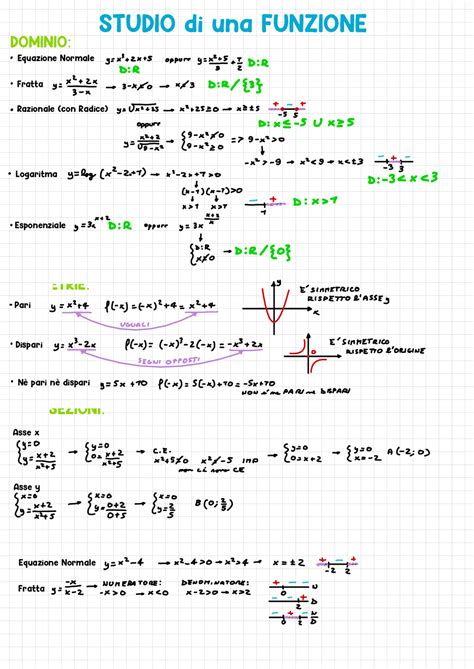 STUDIO di una FUNZIONE
DOMINIO:
• Equazione Normale y=x³+2x+5 oppure y=x²+5/3+7/2
D:R D:R
• Fratta y=x²+2x/3-x → 3-x≠0 → x≠3 D:R/{3}
• Razionale (con Radice) y=√x²+25 → x²+25≥0 → x≥±5 + - +
-5 5
oppure D: x≤-5 U x≥5
y=x²+2/√9-x² → {9-x²≠0 {9-x²≥0 => 9-x²>0
→ -x²>-9 → x²<9 → x<±3 - + -
-3 3
• Logaritma y=log(x²-2x+7) → x²-2x+7>0 D:-3<x<3
(x-1)(x-1)>0
x>1 x>1 → - +
1 D: x>1
• Esponenziale D:R oppure
{D:R {x≠0 → D:R/{0}
• Pari y=x²+4 f(-x)=(-x)²+4=x²+4
UGUALI
y
x
E' SIMMETRICO
RISPETTO ALL'ASSE y
• Dispari y=x³-2x f(-x)=(-x)³-2(-x)=-x³+2x
SEGNI OPPOSTI
0
E' SIMMETRICO
RISPETTO L'ORIGINE
• Nè pari nè dispari y=5x+10 f(-x)=5(-x)+10=-5x+10
NON è NE PARI NE DISPARI
Asse x
{y=0 {y=x+2/x²+5 → {y=0 {0=x+2/x²+5 → C.E. x²+5≠0 x²≠-5 IMP → {y=0 {0=x+2 → {y=0 {x=-2 A(-2;0)
Asse y
{x=0 {y=x+2/x²+5 → {x=0 {y=0+2/0+5 → {x=0 {y=2/5 B(0;2/5)
Equazione Normale y=x²-4 → x²-4>0 → x²>4 → x=±2 + - +
-2 2
Fratta y=-x/x-2 → NUMERATORE: DENOMINATORE: + -
-x>0 → x<0 x-2>0 → x>2 0 N
- + D
2
- + -
0 2